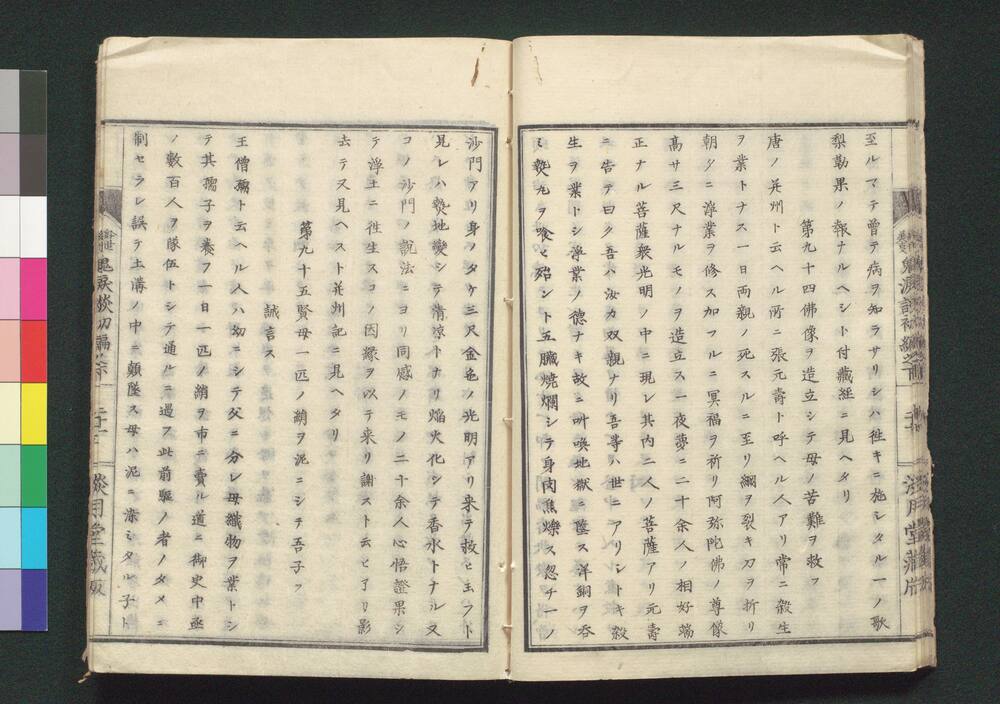 至ルマテ曾テ病ヲ知ラサリシハ徃キニ施シタル一ノ歌
梨勒果ノ報ナルヘシト付藏經ニ見ヘタリ
第九十四佛像ヲ造立シテ母ノ苦難ヲ救フ
唐ノ并州ト云ヘル所ニ張元壽ト呼ヘル人アリ常ニ殺生
ヲ業トナス一日両親ノ死スルニ至リ網ヲ裂キ刀ヲ折リ
朝夕ニ淨業ヲ修ス加フルニ冥福ヲ祈リ阿弥陀佛ノ尊像
高サ三尺ナルモノヲ造立ス一夜夢ニ二十余人ノ相好端
正ナル菩薩衆光明ノ中ニ現レ其内二人ノ菩薩アリ元壽
ニ告テ曰ク吾ハ汝カ双親ナリ吾等ハ世ニアリシトキ殺
生ヲ業トシ淨業ノ德ナキ故ニ叫喚地獄ニ墮ス洋銅ヲ呑
ミ熱丸ヲ喰ヒ殆ント五臓燒爛シテ身肉焦爍ス忽チ一ノ
沙門アリ身ノタケ三尺金色ノ光明アリ来テ救ヒ玉フト
見レハ熱地變シテ清凉トナリ焔火化シテ香水トナル又
コノ沙門ノ説法ニヨリ同感ノモノ二十余人心悟證果シ
テ淨土ニ徃生スコノ因縁ヲ以テ来リ謝スト云ヒ了リ影
去テス見ヘスト并州記ニ見ヘタリ
第九十五賢母一匹ノ絹ヲ泥ニシテ吾子ヲ
誡言ス
王僧孺ト云ヘル人ハ幼ニシテ父ニ分レ母織物ヲ業トシ
テ其孺子ヲ養フ一日一匹ノ絹ヲ市ニ賣ル道ニ御史中丞
ノ數百人ヲ隊伍トシテ通ルニ遇フ此前驅ノ者ノタメニ
制セラレ誤テ土溝ノ中ニ顛墜ス母ハ泥ニ染シタル子ト
二十一